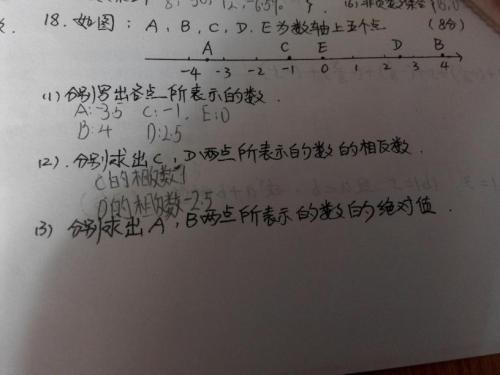 18.如图：A，B，C，D.E为数轴上五个点 (8分)
A C E D B
-4 -3 -2 -1 0 1 2 3 4
(1)分别写出各点所表示的数.
A:-3.5 C:-1. E:0
B:4 D:2.5
(2).分别求出C，D两点所表示的数的相反数.
C的相反数1
D的相反数-2.5
(3) 分别求出A，B两点所表示的数的绝对值.